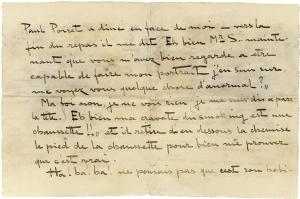 Paul Poiret a diné en face de moi – vers la
fin du repas il me dit Eh bien Mr S. mainte-
nant que vous m'avez bien regardé a etre
capable de faire mon portrait j'en suis sur
me voyez vous quelque chose d'anormal?"
Ma foi non, je ne vois rien je me suis dis
la tête. Eh bien ma cravate du smoking est une
chaussette!!" et il retire d'en dessous la chemise
le pied de la chaussette pour bien me prouver
que c'est vrai.
Ha. ha. ha. ne pensais pas que c'est son habi-